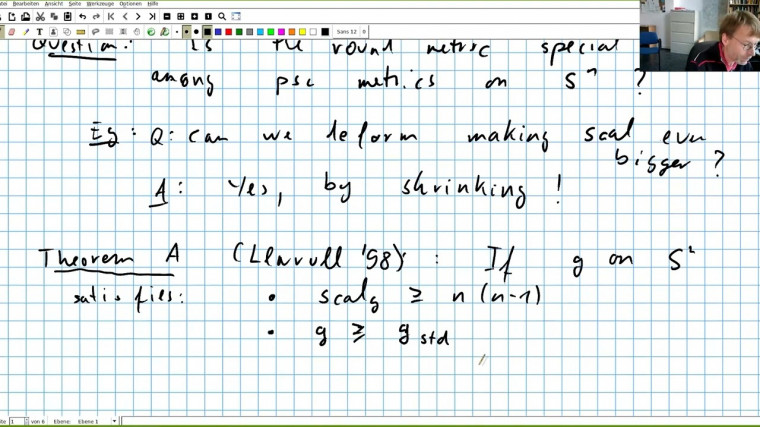 atei Bearbeiten Ansicht Seite Werkzeuge Optionen Hilfe
Sans 12
Question: Is the round metric special
among psc metrics on Sⁿ ?
Eg: Q: can we deform making scal even
bigger ?
A: Yes, by shrinking !
Theorem A (Llarull '98): If g on Sⁿ
satisfies: • scal_g ≥ n(n-1)
• g ≥ g_std
ite 1 von 6 Ebene: Ebene 1